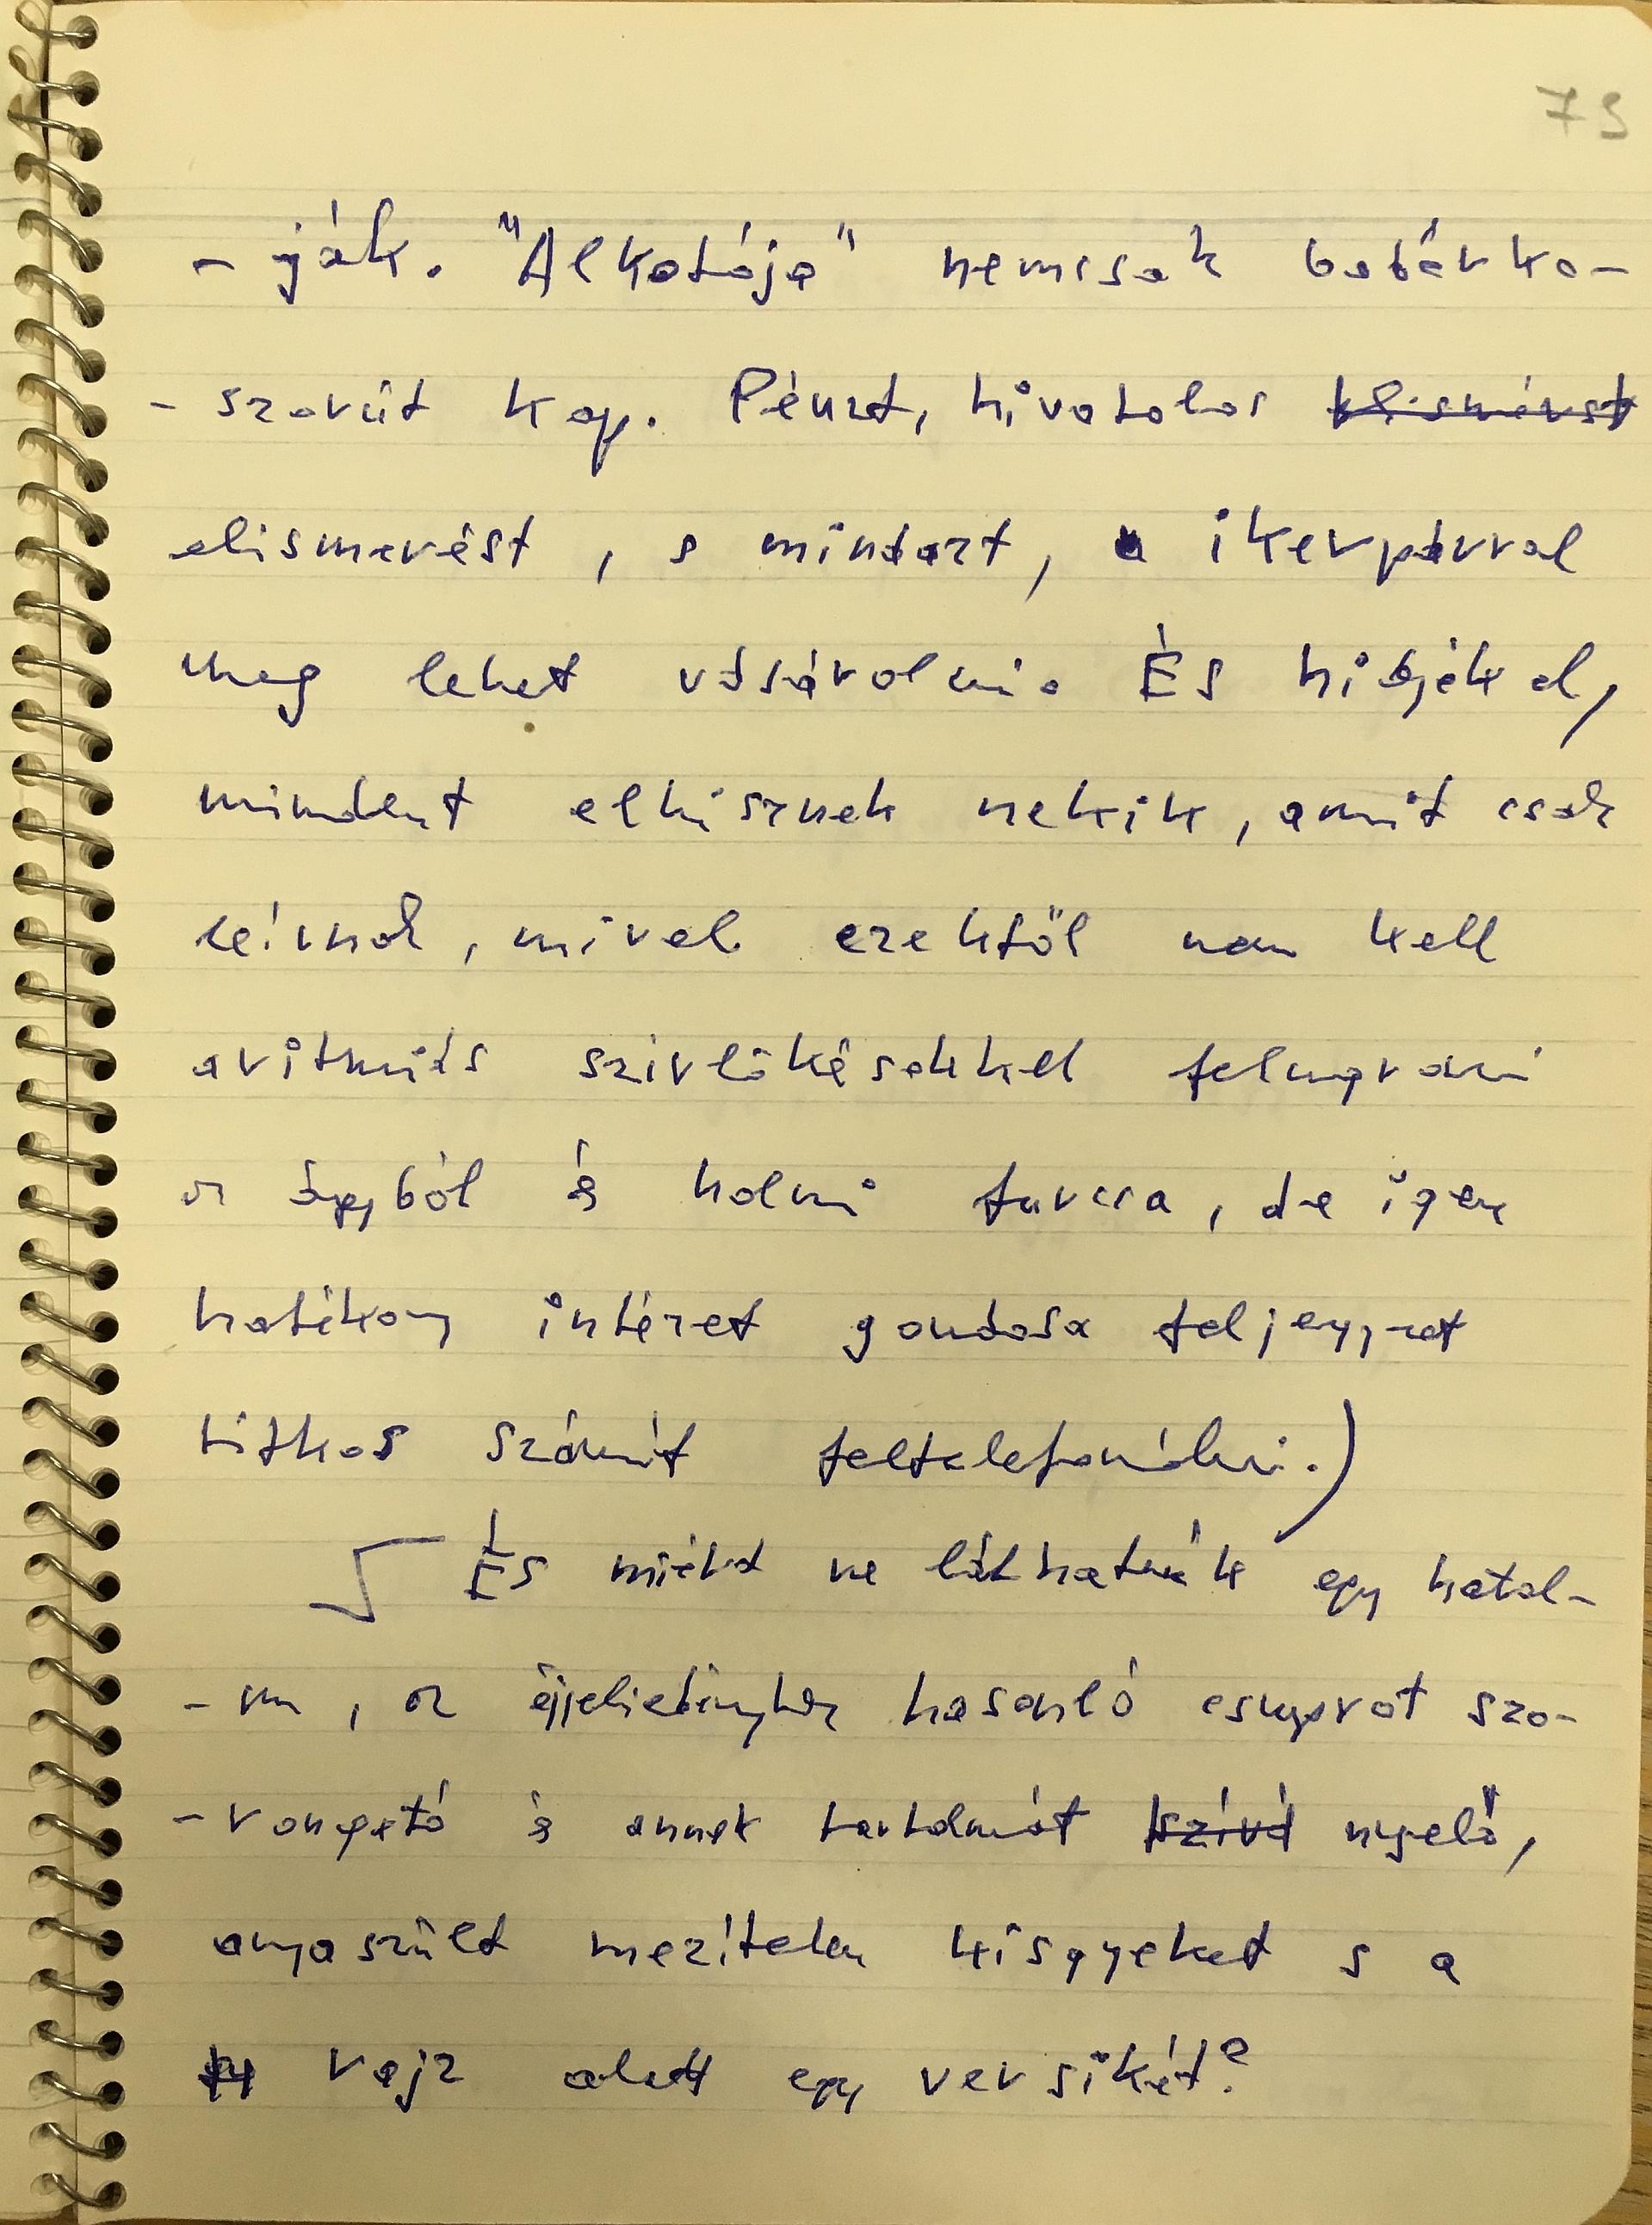 73
- ják. "Alkotója" nemcsak babérko-
- szorút kap. Pénzt, hivatalos elismerést
elismerést, s mindezt, a ikerpárral
meg lehet vásárolni. És higyjék el,
mindent elhisznek nekik, amit csak
leírnak, mivel ezektől nem kell
aritmiás szívlökésekkel felugrani
az ágyból és holmi furcsa, de igen
hatékony intézet gondosan feljegyzett
titkos számát feltelefonálni.)
És miért ne láthatnánk egy hatal-
- m, az éjjeliedényhez hasonló csuprot szo-
- rongató és annek tartalmát szívó nyelő,
anyaszült mezítelen kisgyeket s a
rajz alatt egy versikét?